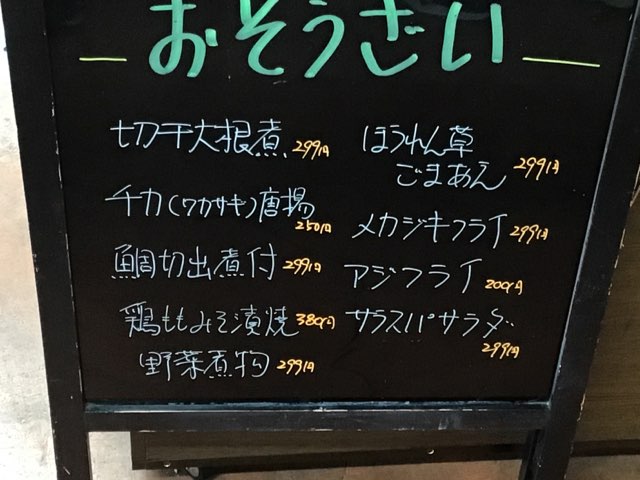 おそうざい
切干大根煮 299円
チカ(ワカサギ)唐揚 250円
鯛切出煮付 299円
鶏ももみそ漬焼 380円
野菜煮物 299円
ほうれん草
ごまあえ 299円
メカジキフライ 299円
アジフライ 200円
サラスパサラダ 299円